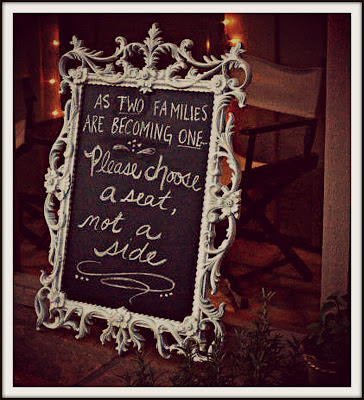 AS TWO FAMILIES
ARE BECOMING ONE...
Please choose
a seat,
not a
side